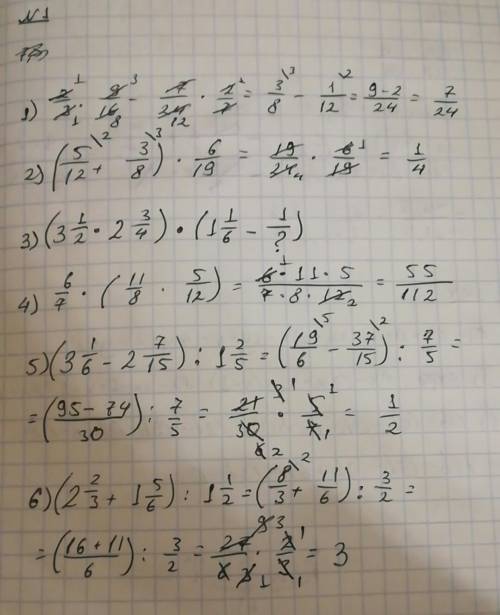 №1
1) 2/3 · 9/16 - 7/24 · 2/7 = 3/8 - 1/12 = 9-2/24 = 7/24
2) (5/12 + 3/8) · 6/19 = 19/24 · 6/19 = 1/4
3) (3 1/2 · 2 3/4) · (1 1/6 - 1/?)
4) 6/7 · (11/8 · 5/12) = 6·11·5/7·8·12 = 55/112
5) (3 1/6 - 2 7/15) : 1 2/5 = (19/6 - 37/15) : 7/5 =
= (95-74/30) : 7/5 = 21/30 · 5/7 = 1/2
6) (2 2/3 + 1 5/6) : 1 1/2 = (8/3 + 11/6) : 3/2 =
= (16+11/6) : 3/2 = 27/6 · 2/3 = 3